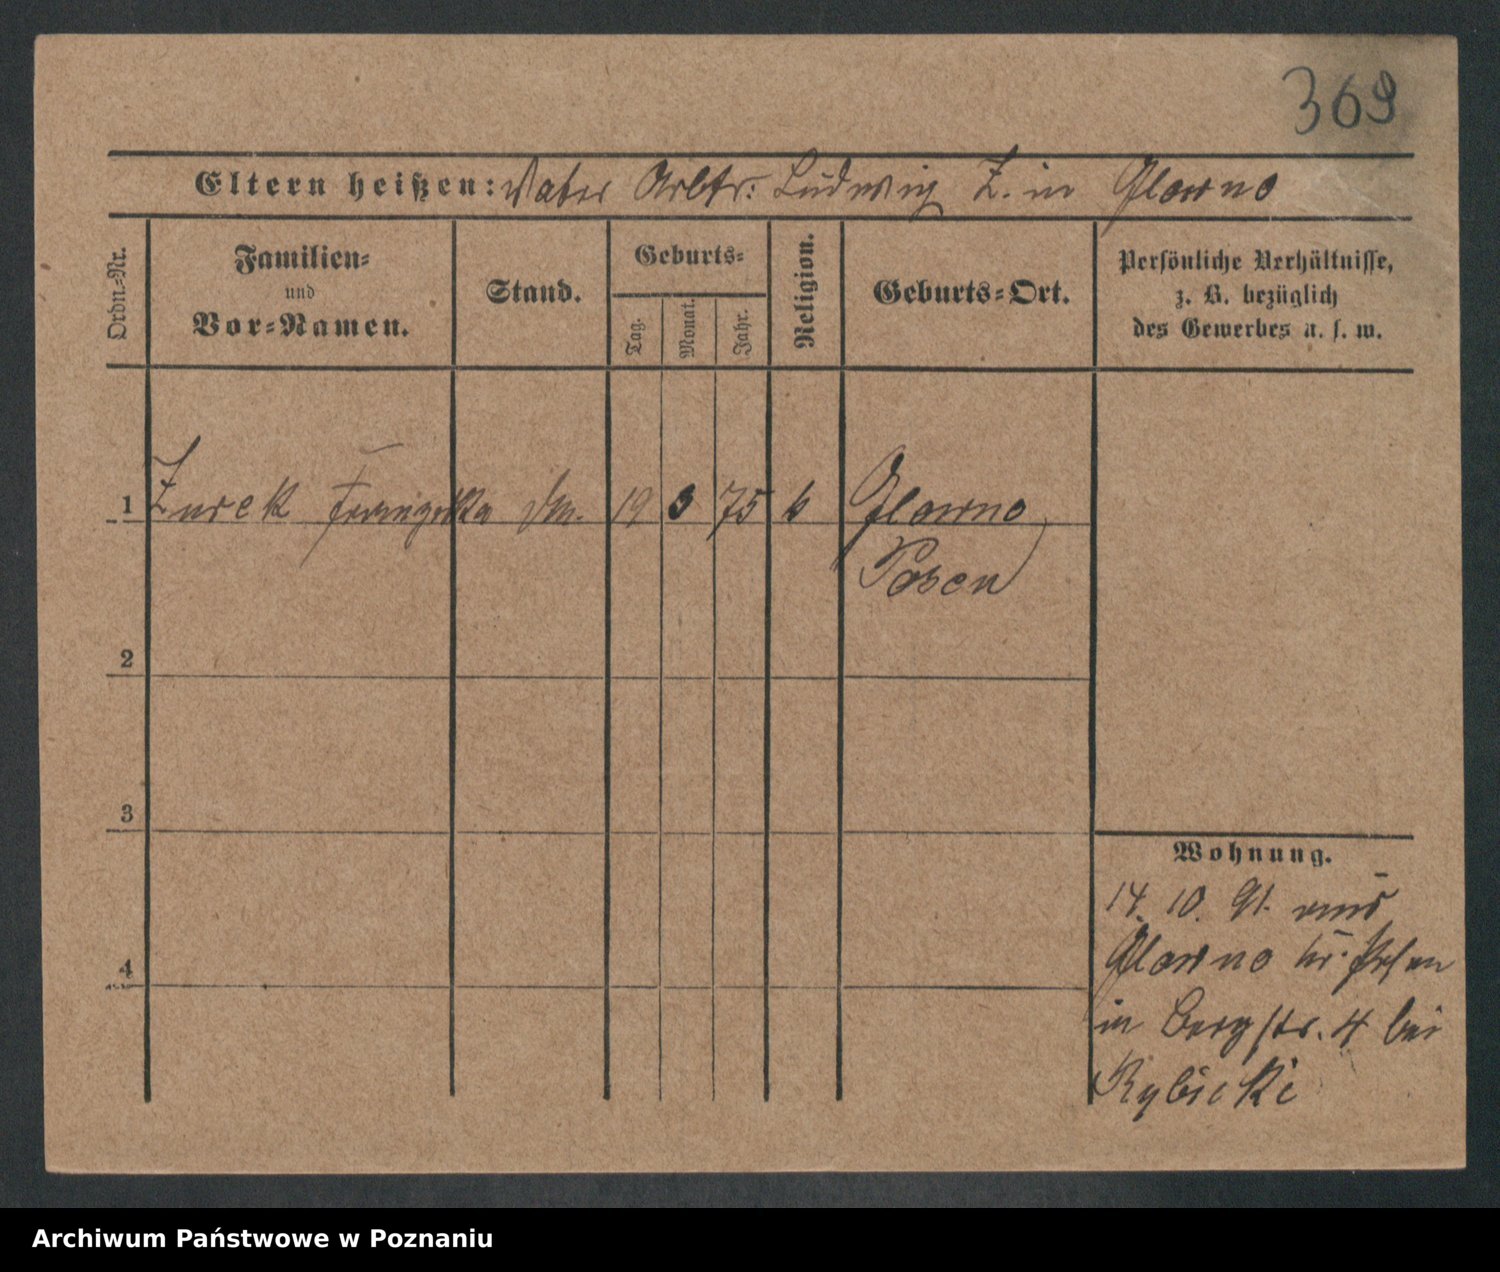 369
Eltern heißen: Vater Arbtr: Ludwig Z. in Glowno
Ordn.-Nr.
Familien-
und
Vor-Namen.
Stand.
Geburts-
Tag.
Monat.
Jahr.
Religion.
Geburts-Ort.
Persönliche Verhältnisse,
z. B. bezüglich
des Gewerbes u. s. w.
1 Zurek Franziska 19 3 75 k Glowno,
Posen
2
3
4
Wohnung.
14. 10. 91. aus
Glowno kr. Posen
in Bergstr. 4 bei
Rybicki
Archiwum Państwowe w Poznaniu